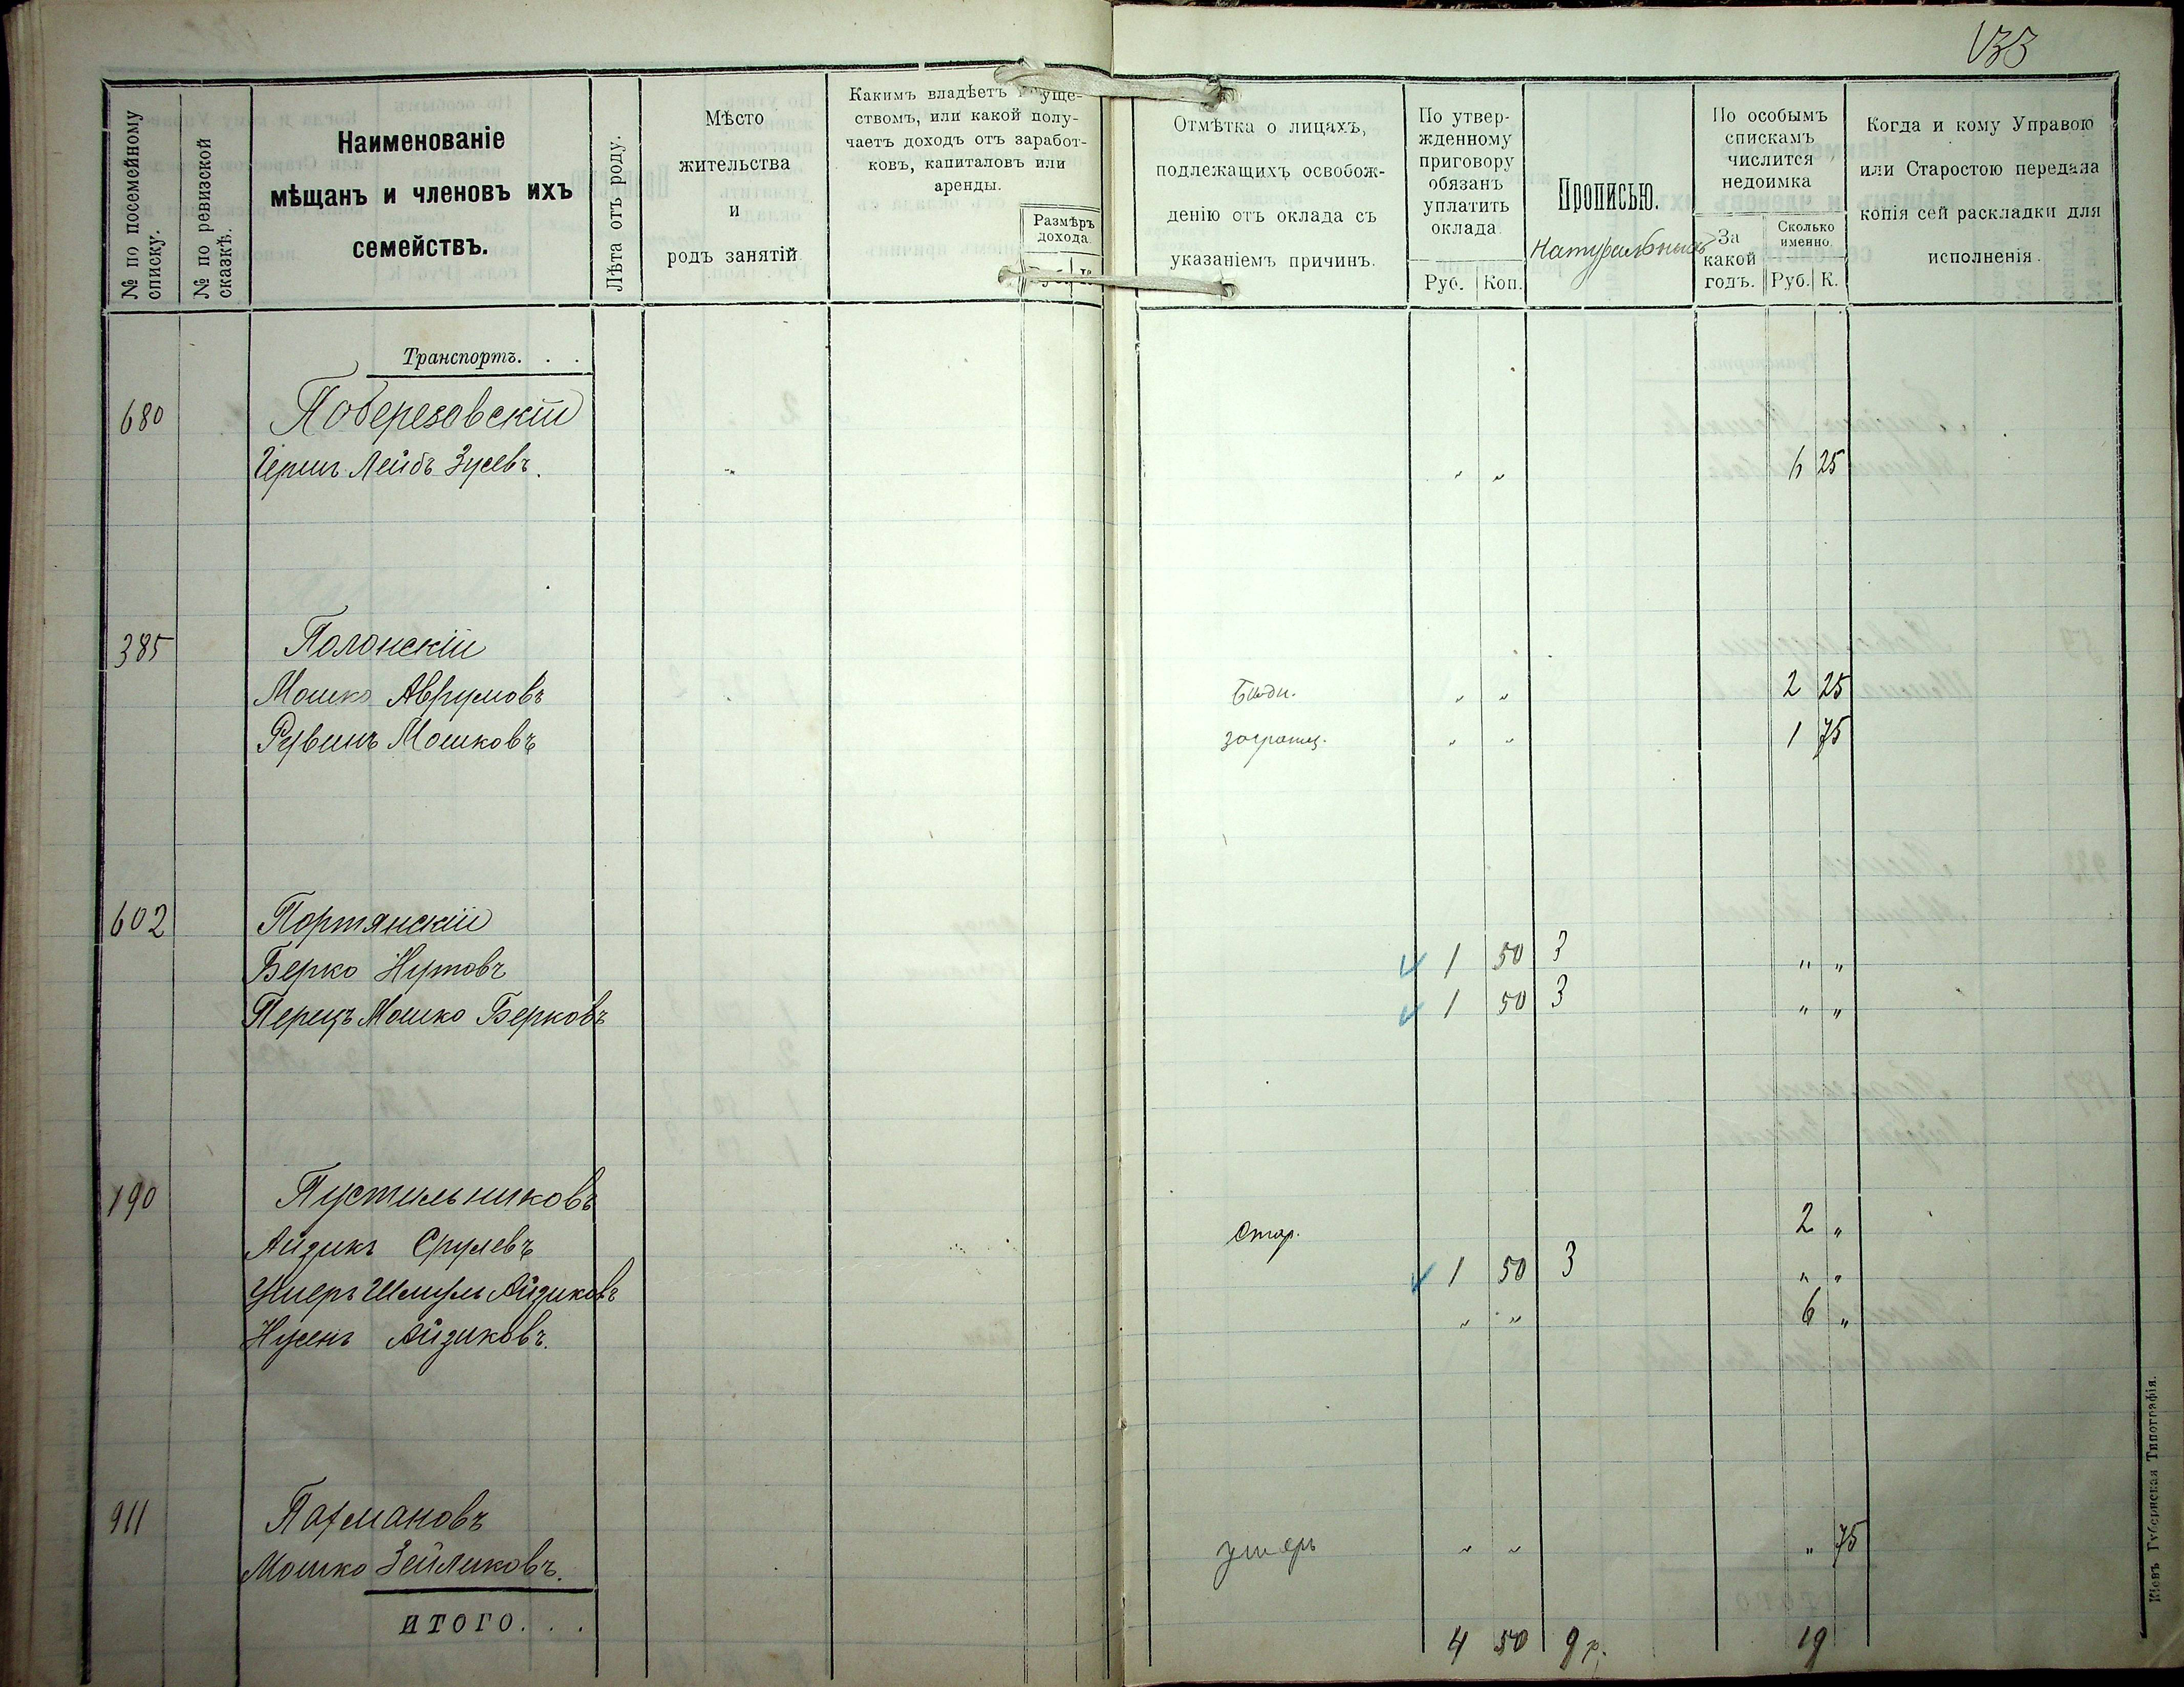 133
№ по посемейному списку.
№ по ревизской сказкѣ.
Наименованіе
мѣщанъ и членовъ ихъ
семействъ.
Лѣта отъ роду.
Мѣсто
жительства
и
родъ занятій
Какимъ владѣетъ уще-
ствомъ, или какой полу-
чаетъ доходъ отъ заработ-
ковъ, капиталовъ или
аренды.
Размѣръ
дохода.
Отмѣтка о лицахъ,
подлежащихъ освобож-
денію отъ оклада съ
указаніемъ причинъ.
По утвер-
жденному
приговору
обязанъ
уплатить
оклада
Руб. Коп.
Прописью.
Натуральныхъ
По особымъ
спискамъ
числится
недоимка
За
какой
годъ.
Сколько
именно.
Руб. К.
Когда и кому Управою
или Старостою передана
копія сей раскладки для
исполненія.
Транспортъ. . .
680 Поберезовскій
Герш Лейбъ Зусевъ. " " 6 25
385 Полонскій
Мошко Аврумовъ " " 2 25
Рувинъ Мошковъ заграниц. " " 1 75
602 Портянскій
Берко Нутовъ 1 50 3 " "
Перецъ Мошко Берковъ 1 50 3 " "
190 Пустильниковъ
Айзикъ Срулевъ Стар. 2 "
Ушеръ Шмуль Айзиковъ 1 50 3 " "
Нусенъ Айзиковъ. " " 6 "
911 Патмановъ
Мошко Зейликовъ. умеръ " " " 75
ИТОГО. . . 4 50 9 р. 19
Кіевъ Губернская Типографія.